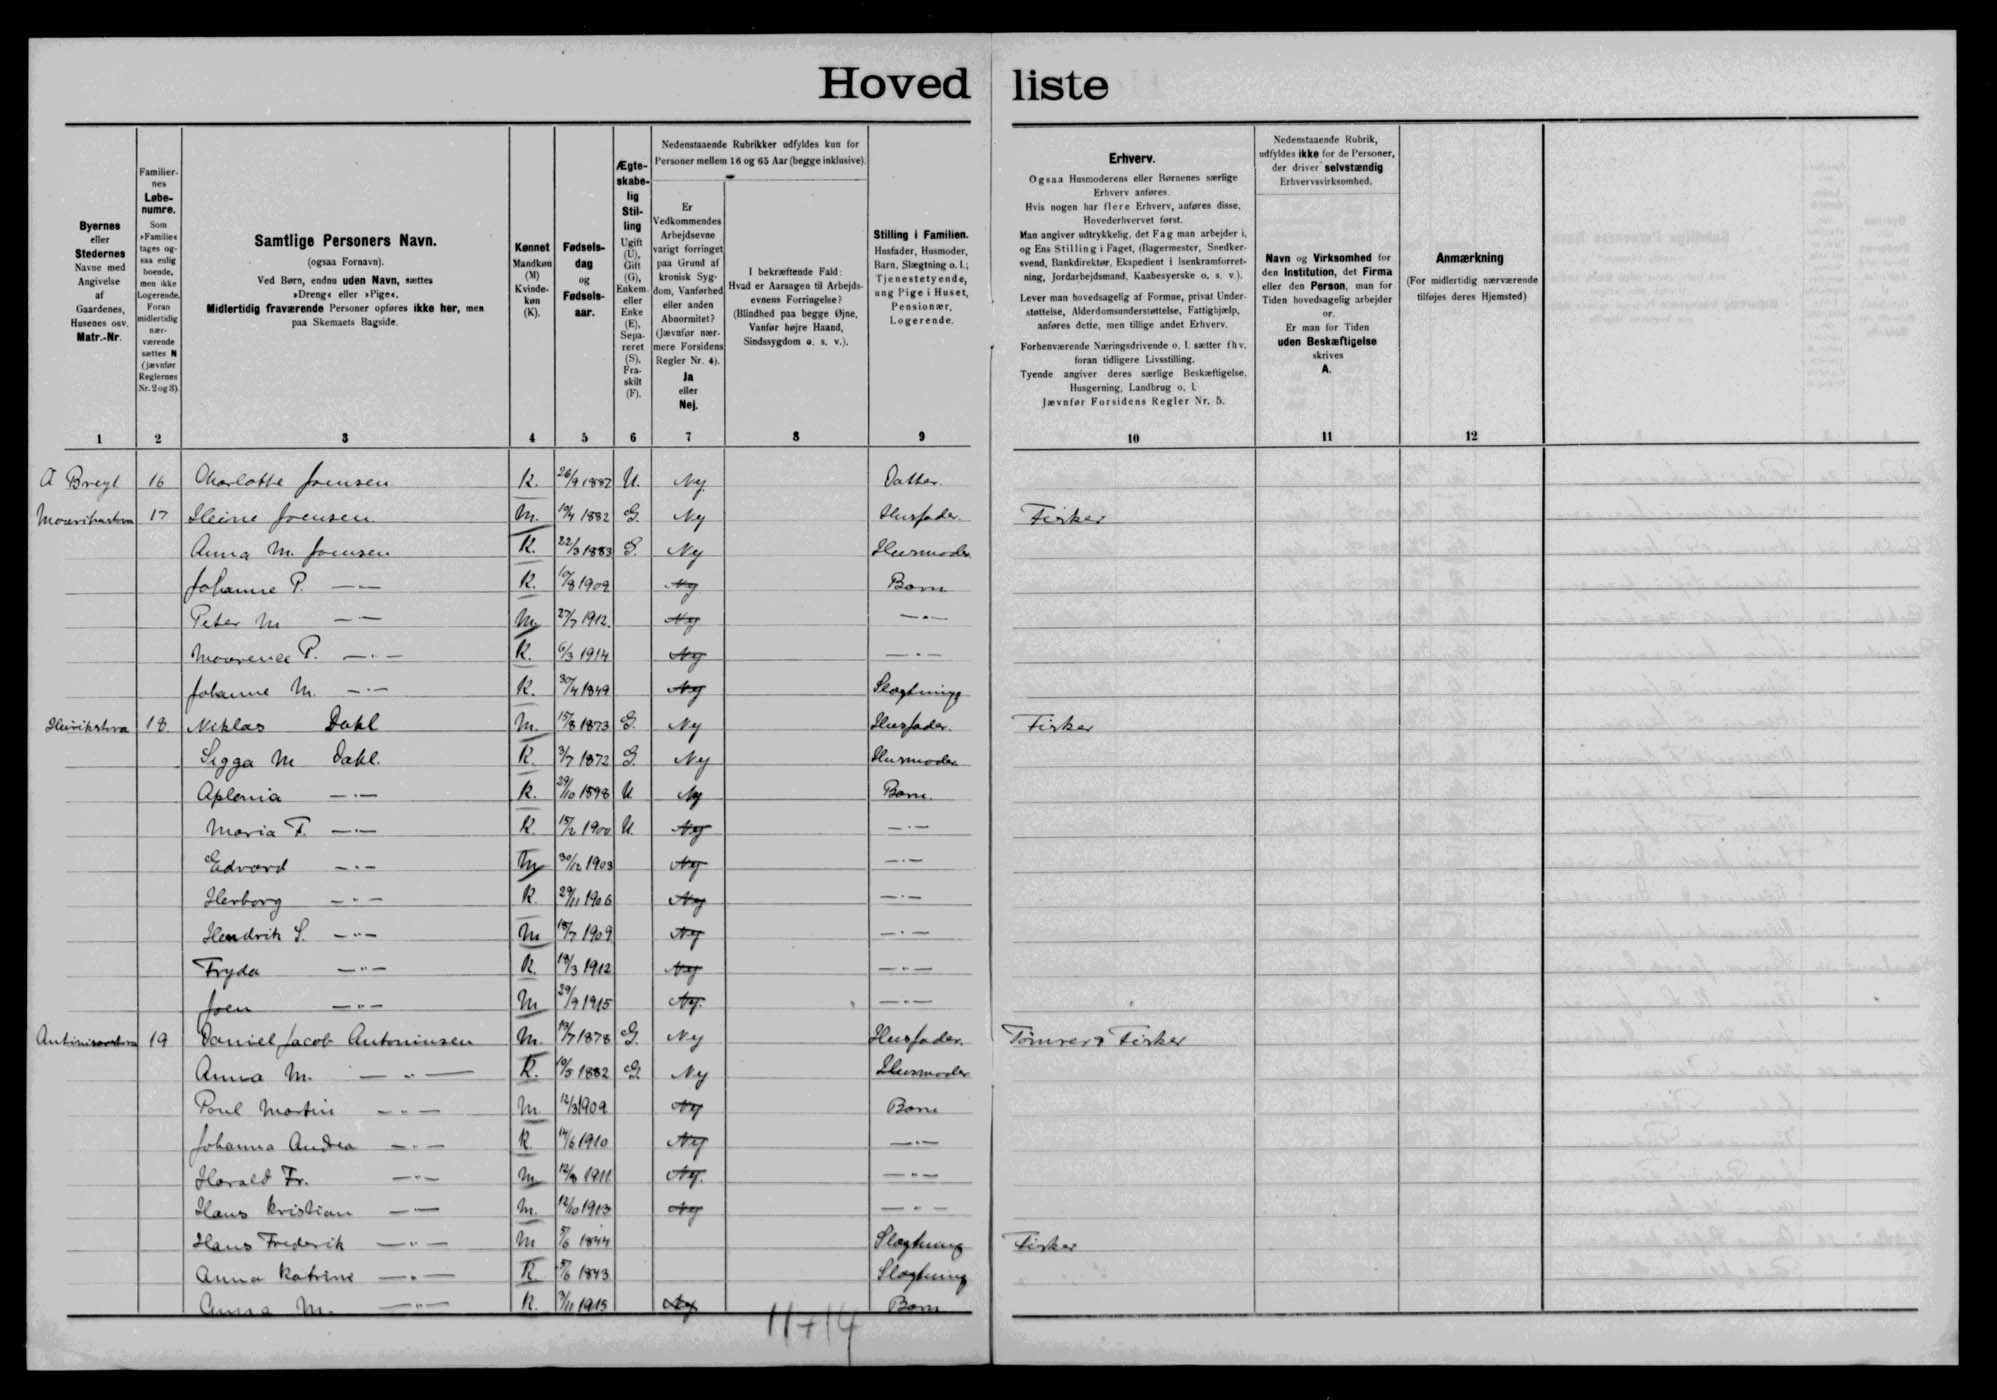 Hoved liste
Byernes
eller
Stedernes
Navne med
Angivelse
af
Gaardenes,
Husenes osv.
Matr.-Nr.
1
Familier-
nes
Løbe-
numre.
Som
»Familie«
tages og-
saa enlig
boende,
men ikke
Logerende.
Foran
midlertidig
nær-
værende
sættes N
(jævnfør
Reglernes
Nr. 2 og 3).
2
Samtlige Personers Navn.
(ogsaa Fornavn).
Ved Børn, endnu uden Navn, sættes
»Dreng« eller »Pige«.
Midlertidig fraværende Personer opføres ikke her, men
paa Skemaets Bagside.
3
Kønnet
Mandkøn
(M)
Kvinde-
køn
(K).
4
Fødsels-
dag
og
Fødsels-
aar.
5
Ægte-
skabe-
lig
Stil-
ling
Ugift
(U),
Gift
(G),
Enkem.
eller
Enke
(E),
Sepa-
reret
(S),
Fra-
skilt
(F).
6
Nedenstaaende Rubrikker udfyldes kun for
Personer mellem 16 og 65 Aar (begge inklusive).
Er
Vedkommendes
Arbejdsevne
varigt forringet
paa Grund af
kronisk Syg-
dom, Vanførhed
eller anden
Abnormitet?
(Jævnfør nær-
mere Forsidens
Regler Nr. 4).
Ja
eller
Nej.
7
I bekræftende Fald:
Hvad er Aarsagen til Arbejds-
evnens Forringelse?
(Blindhed paa begge Øjne,
Vanfør højre Haand,
Sindssygdom o. s. v.).
8
Stilling i Familien.
Husfader, Husmoder,
Barn, Slægtning o. l.;
Tjenestetyende,
ung Pige i Huset,
Pensionær,
Logerende.
9
Erhverv.
Ogsaa Husmoderens eller Børnenes særlige
Erhverv anføres.
Hvis nogen har flere Erhverv, anføres disse,
Hovederhvervet først.
Man angiver udtrykkelig, det Fag man arbejder i,
og Ens Stilling i Faget, (Bagermester, Snedker-
svend, Bankdirektør, Ekspedient i Isenkramforret-
ning, Jordarbejdsmand, Kaabesyerske o. s. v.).
Lever man hovedsagelig af Formue, privat Under-
støttelse, Alderdomsunderstøttelse, Fattighjælp,
anføres dette, men tillige andet Erhverv.
Forhenværende Næringsdrivende o. l. sætter fhv.
foran tidligere Livsstilling.
Tyende angiver deres særlige Beskæftigelse.
Husgerning, Landbrug o. l.
Jævnfør Forsidens Regler Nr. 5.
10
Nedenstaaende Rubrik,
udfyldes ikke for de Personer,
der driver selvstændig
Erhvervsvirksomhed.
Navn og Virksomhed for
den Institution, det Firma
eller den Person, man for
Tiden hovedsagelig arbejder
or.
Er man for Tiden
uden Beskæftigelse
skrives
A.
11
Anmærkning
(For midlertidig nærværende
tilføjes deres Hjemsted)
12
16 Charlotte Joensen K. 26/9 1882 U. Nej Datter.
17 Heine Joensen M. 1882 G. Nej Husfader. Fisker
Anna M. Joensen K. 22/3 1883 G. Nej Husmoder
Johanne P. — — K. 10/8 1909 Nej Barn
Peter M — — M 27/7 1912. Nej —〃—
P. —〃— K. 6/3 1914 Nej —〃—
Johanne M. —〃— K. 30/4 1849 Nej Slægtning
18. Niklas Dahl M. 15/8 1873 G. Nej Husfader. Fisker
Sigga M Dahl. K. 3/7 1872 G. Nej Husmoder
Aplonia —〃— K. 29/10 1898 U Nej Barn.
Maria F. —〃— K. 15/2 1900 U. Nej —〃—
Edvard —〃— M 30/12 1903 Nej —〃—
Herborg —〃— K. 29/11 1906 Nej —〃—
Hendrik S. —〃— M 18/7 1909 Nej —〃—
Fryda —〃— K. 19/3 1912 Nej —〃—
Joen —〃— M 29/9 1915 Nej. —〃—
19 Daniel Jacob Antoniusen M. 1878 G. Nej Husfader. Tømrer & Fisker
Anna M. —〃— K. 1882 G. Nej Husmoder
Poul Martin —〃— M 12/3 1909 Nej Barn
Johanna Andrea —〃— K. 14/6 1910 Nej —〃—
Harald Fr. —〃— M 12/8 1911 Nej. —〃—
Hans Kristian —〃— M. 12/10 1913 Nej —〃—
Hans Frederik —〃— M 5/6 1844 Slægtning Fisker
Anna Katrine —〃— K 1843 Slægtning
Anna M. —〃— K. 9/11 1915 Nej Barn
11+14